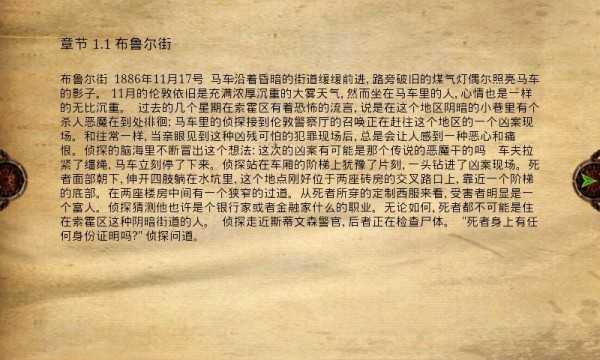 章节 1.1 布鲁尔街
布鲁尔街  1886年11月17号  马车沿着昏暗的街道缓缓前进, 路旁破旧的煤气灯偶尔照亮马车
的影子。 11月的伦敦依旧是充满浓厚沉重的大雾天气, 然而坐在马车里的人, 心情也是一样
的无比沉重。  过去的几个星期在索霍区有着恐怖的流言, 说是在这个地区阴暗的小巷里有个
杀人恶魔在到处徘徊; 马车里的侦探接到伦敦警察厅的召唤正在赶往这个地区的一个凶案现
场。 和往常一样, 当亲眼见到这种凶残可怕的犯罪现场后, 总是会让人感到一种恶心和痛
恨。 侦探的脑海里不断冒出这个想法: 这次的凶案有可能是那个传说的恶魔干的吗   车夫拉
紧了缰绳, 马车立刻停了下来。 侦探站在车厢的阶梯上犹豫了片刻, 一头钻进了凶案现场。 死
者面部朝下, 伸开四肢躺在水坑里, 这个地点刚好位于两座砖房的交叉路口上, 靠近一个阶梯
的底部。 在两座楼房中间有一个狭窄的过道。 从死者所穿的定制西服来看, 受害者明显是一
个富人。 侦探猜测他也许是个银行家或者金融家什么的职业。 无论如何, 死者都不可能是住
在索霍区这种阴暗街道的人。  侦探走近斯蒂文森警官, 后者正在检查尸体。  "死者身上有任
何身份证明吗?" 侦探问道。